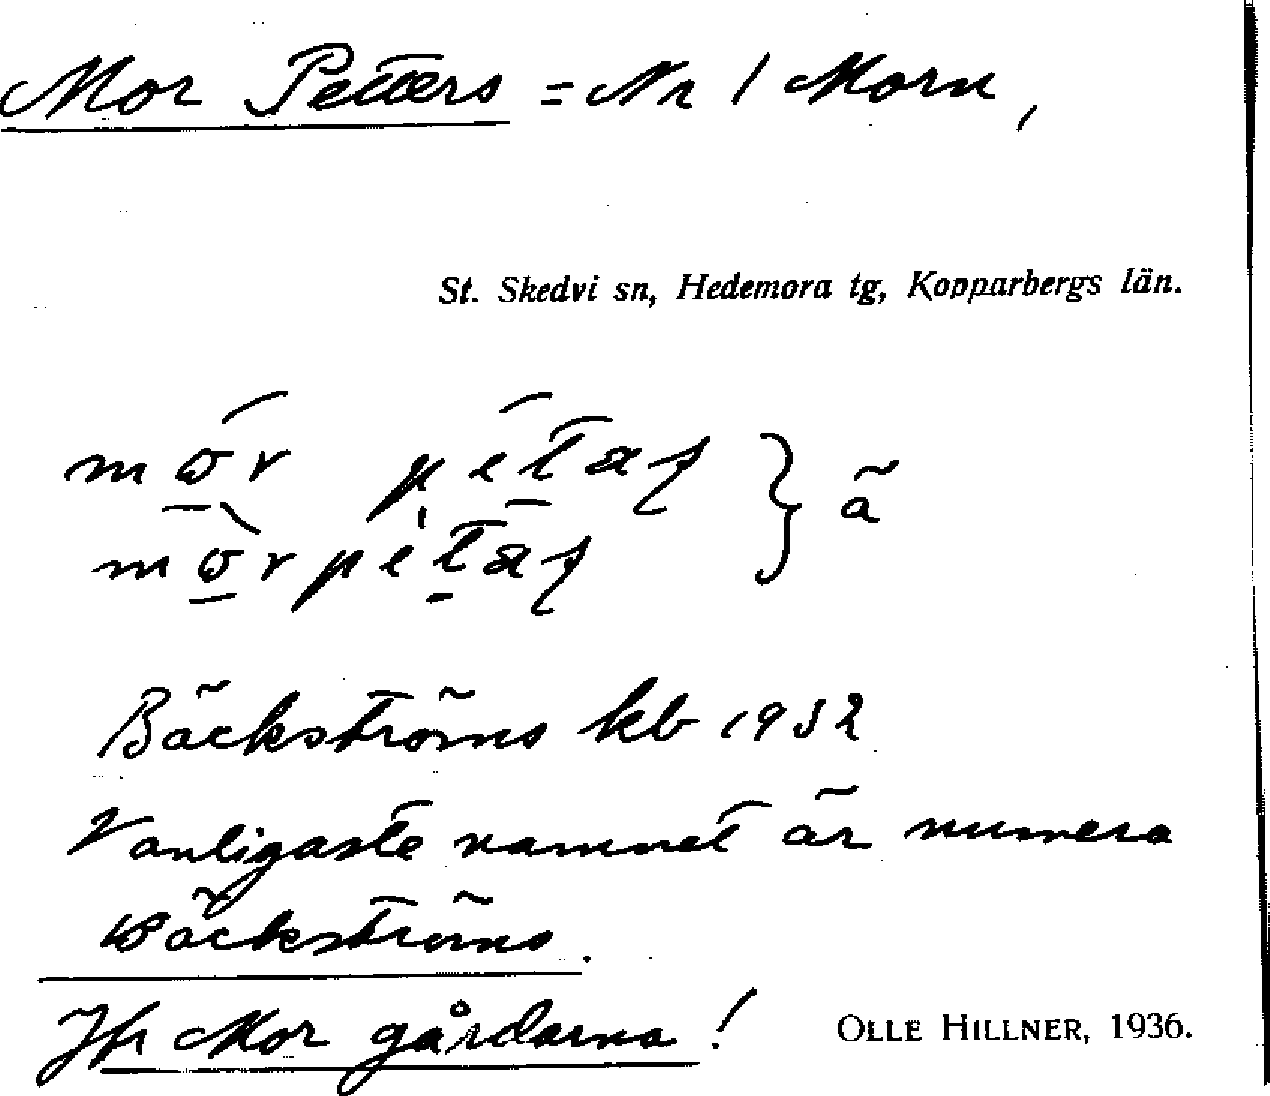 Mor Petters = Nr 1 Morn,
St. Skedvi sn, Hedemora tg, Kopparbergs län.
} ä
Bäckströms kb 1932
Vanligaste namnet är numera
Bäckströms.
Jfr Mor gårdarna!
OLLE HILLNER, 1936.